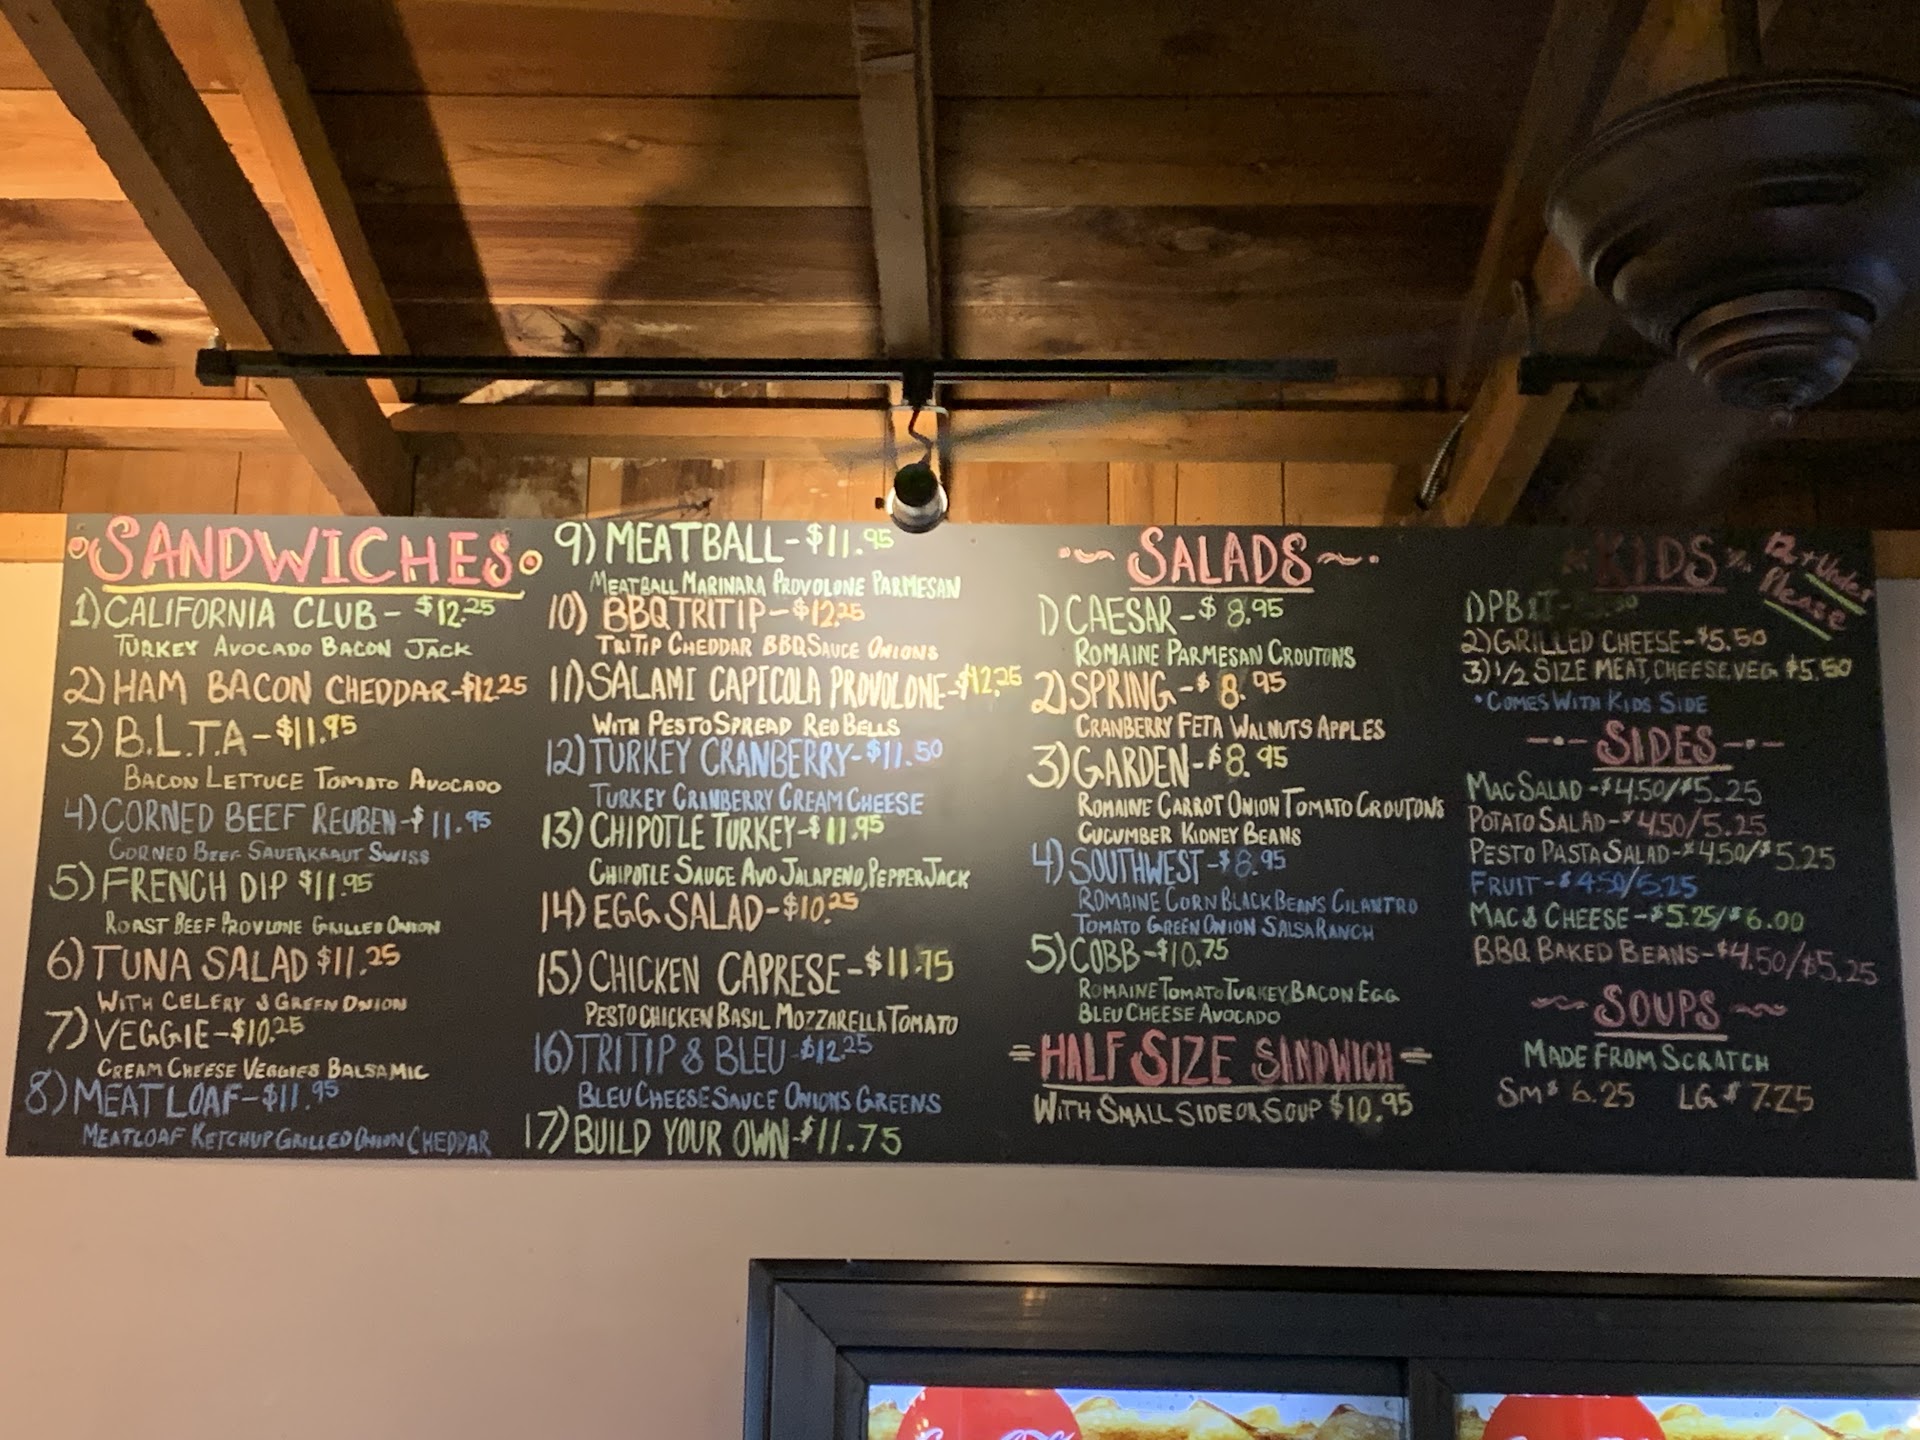 SANDWICHES
1) CALIFORNIA CLUB - $12.25
TURKEY AVOCADO BACON JACK
2) HAM BACON CHEDDAR - $12.25
3) B.L.T.A - $11.95
BACON LETTUCE TOMATO AVOCADO
4) CORNED BEEF REUBEN - $11.95
CORNED BEEF SAUERKRAUT SWISS
5) FRENCH DIP $11.95
ROAST BEEF PROVLONE GRILLED ONION
6) TUNA SALAD $11.25
WITH CELERY & GREEN ONION
7) VEGGIE - $10.25
CREAM CHEESE VEGGIES BALSAMIC
8) MEATLOAF - $11.95
MEATLOAF KETCHUP GRILLED ONION CHEDDAR
9) MEATBALL - $11.95
MEATBALL MARINARA PROVOLONE PARMESAN
10) BBQ TRITIP - $12.25
TRITIP CHEDDAR BBQ SAUCE ONIONS
11) SALAMI CAPICOLA PROVOLONE - $12.25
WITH PESTO SPREAD RED BELLS
12) TURKEY CRANBERRY - $11.50
TURKEY CRANBERRY CREAM CHEESE
13) CHIPOTLE TURKEY - $11.95
CHIPOTLE SAUCE AVO JALAPENO, PEPPER JACK
14) EGG SALAD - $10.25
15) CHICKEN CAPRESE - $11.75
PESTO CHICKEN BASIL MOZZARELLA TOMATO
16) TRITIP & BLEU - $12.25
BLEU CHEESE SAUCE ONIONS GREENS
17) BUILD YOUR OWN - $11.75
SALADS
1) CAESAR - $8.95
ROMAINE PARMESAN CROUTONS
2) SPRING - $8.95
CRANBERRY FETA WALNUTS APPLES
3) GARDEN - $8.95
ROMAINE CARROT ONION TOMATO CROUTONS
CUCUMBER KIDNEY BEANS
4) SOUTHWEST - $8.95
ROMAINE CORN BLACK BEANS CILANTRO
TOMATO GREEN ONION SALSA RANCH
5) COBB - $10.75
ROMAINE TOMATO TURKEY BACON EGG
BLEU CHEESE AVOCADO
= HALF SIZE SANDWICH =
WITH SMALL SIDE OR SOUP $10.95
KIDS
12 + Under
Please
1) PB&J -
2) GRILLED CHEESE - $5.50
3) 1/2 SIZE MEAT, CHEESE, VEG $5.50
• COMES WITH KIDS SIDE
SIDES
MAC SALAD - $4.50/$5.25
POTATO SALAD - $4.50/5.25
PESTO PASTA SALAD - $4.50/$5.25
FRUIT - $4.50/5.25
MAC & CHEESE - $5.25/$6.00
BBQ BAKED BEANS - $4.50/$5.25
SOUPS
MADE FROM SCRATCH
SM $6.25 LG $7.25